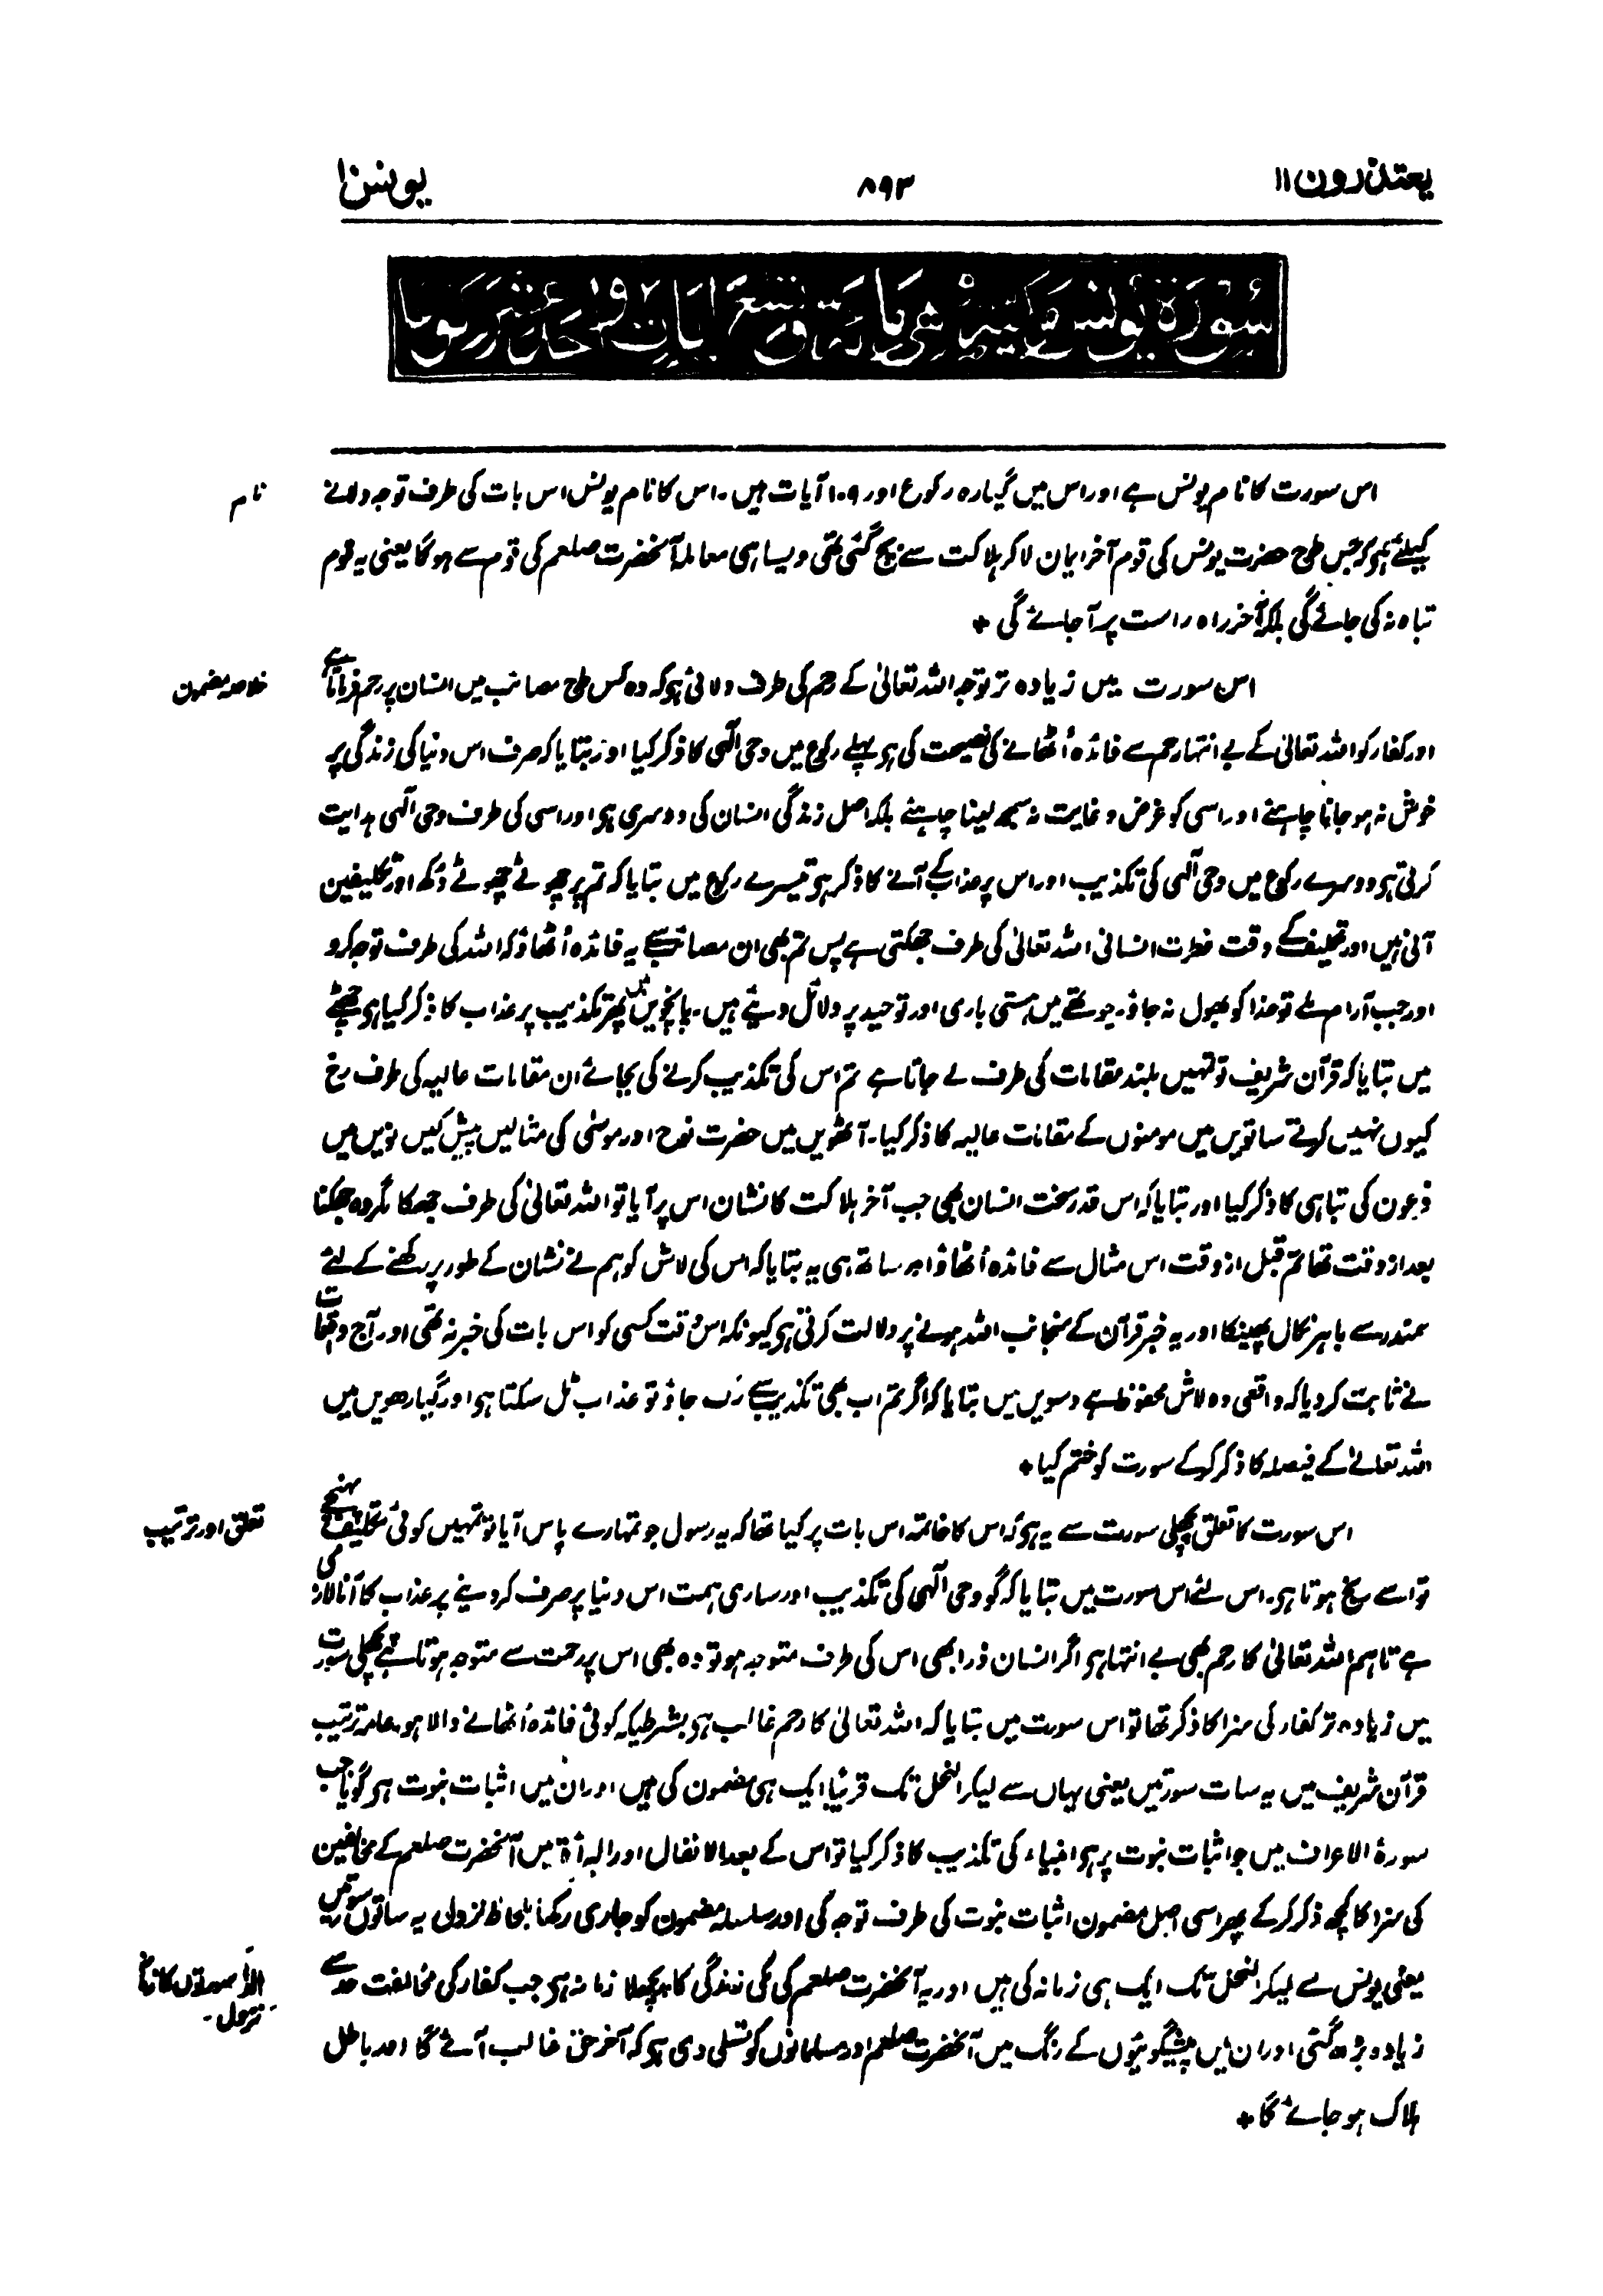 یعتذرون ۱۱
۸۹۳
یونس ۱۰
سُوْرَةُ یُوْنُسَ مَکِّیَّةٌ وَّهِیَ مِائَةٌ وَّتِسْعُ اٰیَاتٍ وَّاِحْدٰی عَشَرَ رُکُوْعًا
نام
اس سورت کا نام یونس ہے اور اس میں گیارہ رکوع اور ۱۰۹ آیات ہیں۔ اس کا نام یونس اس بات کی طرف توجہ دلانے
کیلئے ہی کہ جس طرح حضرت یونس کی قوم آخر ایمان لا کر ہلاکت سے بچ گئی تھی ویسا ہی معاملہ آنحضرت صلعم کی قوم سے ہوگا یعنی یہ قوم
تباہ نہ کی جائے گی بلکہ آخر راہ راست پر آجائے گی ٭
خلاصہ مضمون
اس سورت میں زیادہ تر توجہ اللہ تعالیٰ کے رحم کی طرف دلائی ہی کہ وہ کس طرح مصائب میں انسان پر رحم فرماتا ہے
اور کفار کو اللہ تعالیٰ کے بے انتہا رحم سے فائدہ اُٹھانے کی نصیحت کی ہی پہلے رکوع میں وحی الٰہی کا ذکر کیا اور بتایا کہ صرف اس دنیا کی زندگی پر
خوش نہ ہو جانا چاہئے اور اسی کو غرض و غایت نہ سمجھ لینا چاہئے بلکہ اصل زندگی انسان کی دوسری ہی اور اسی کی طرف وحی الٰہی ہدایت
کرتی ہی دوسرے رکوع میں وحی الٰہی کی تکذیب اور اس پر عذاب کے آنے کا ذکر ہی تیسرے رکوع میں بتایا کہ تم پر چھوٹے چھوٹے دُکھ اور تکلیفیں
آتی ہیں اور تکلیف کے وقت فطرت انسانی اللہ تعالیٰ کی طرف جھکتی ہے پس تم بھی ان مصائب سے یہ فائدہ اُٹھاؤ کہ اللہ کی طرف توجہ کرو
اور جب آرام ملے تو خدا کو بھول نہ جاؤ۔ چوتھے میں ہستی باری اور توحید پر دلائل دیئے ہیں۔ پانچویں میں پھر تکذیب پر عذاب کا ذکر کیا ہی چھٹے
میں بتایا کہ قرآن شریف تو تمہیں بلند مقامات کی طرف لے جاتا ہے تم اس کی تکذیب کرنے کی بجائے ان مقامات عالیہ کی طرف رخ
کیوں نہیں کرتے ساتویں میں مومنوں کے مقامات عالیہ کا ذکر کیا۔ آٹھویں میں حضرت نوح اور موسٰی کی مثالیں پیش کیں نویں میں
فرعون کی تباہی کا ذکر کیا اور بتایا کہ اس قدر سخت انسان بھی جب آخر ہلاکت کا نشان اس پر آیا تو اللہ تعالیٰ کی طرف جھکا مگر وہ جھکنا
بعد از وقت تھا تم قبل از وقت اس مثال سے فائدہ اُٹھاؤ اور ساتھ ہی یہ بتایا کہ اس کی لاش کو ہم نے نشان کے طور پر رکھنے کے لئے
سمندر سے باہر نکال پھینکا اور یہ خبر قرآن کے منجانب اللہ ہونے پر دلالت کرتی ہی کیونکہ اس وقت کسی کو اس بات کی خبر نہ تھی اور آج واقعات
نے ثابت کر دیا کہ واقعی وہ لاش محفوظ ہے دسویں میں بتایا کہ اگر تم اب بھی تکذیب سے رک جاؤ تو عذاب ٹل سکتا ہی اور گیارھویں میں
اللہ تعالیٰ کے فیصلہ کا ذکر کر کے سورت کو ختم کیا ٭
تعلق اور ترتیب
اس سورت کا تعلق پچھلی سورت سے یہ ہی کہ اس کا خاتمہ اس بات پر کیا تھا کہ یہ رسول جو تمہارے پاس آیا تو تمہیں کوئی تکلیف پہنچے
تو اسے رنج ہوتا ہی۔ اس لئے اس سورت میں بتایا کہ گو وحی الٰہی کی تکذیب اور ساری ہمت اس دنیا پر صرف کر دینے پر عذاب کا آنا لازمی
ہے تاہم اللہ تعالیٰ کا رحم بھی بے انتہا ہی اگر انسان ذرا بھی اس کی طرف متوجہ ہو تو وہ بھی اس پر رحمت سے متوجہ ہوتا ہے پچھلی سورت
میں زیادہ تر کفار کی سزا کا ذکر تھا تو اس سورت میں بتایا کہ اللہ تعالیٰ کا رحم غالب ہی بشرطیکہ کوئی فائدہ اُٹھانے والا ہو۔ عام ترتیب
قرآن شریف میں یہ سات سورتیں یعنی یہاں سے لیکر النحل تک قریباً ایک ہی مضمون کی ہیں اور ان میں اثبات نبوت ہی گویا جب
سورۂ الاعراف میں جو اثبات نبوت پر ہی انبیاء کی تکذیب کا ذکر کیا تو اس کے بعد الانفال اور البرأة میں آنحضرت صلعم کے مخالفین
کی سزا کا کچھ ذکر کر کے پھر اسی اصل مضمون اثبات نبوت کی طرف توجہ کی اور سلسلہ مضمون کو جاری رکھا بلحاظ نزول یہ ساتوں سورتیں
الر سورتوں کا زمانہ نزول۔
یعنی یونس سے لیکر النحل تک ایک ہی زمانہ کی ہیں اور یہ آنحضرت صلعم کی مکی زندگی کا پچھلا زمانہ ہی جب کفار کی مخالفت حد سے
زیادہ بڑھ گئی اور ان میں پیشگوئیوں کے رنگ میں آنحضرت صلعم اور مسلمانوں کو تسلی دی ہی کہ آخر حق غالب آئے گا اور باطل
ہلاک ہو جائے گا ٭